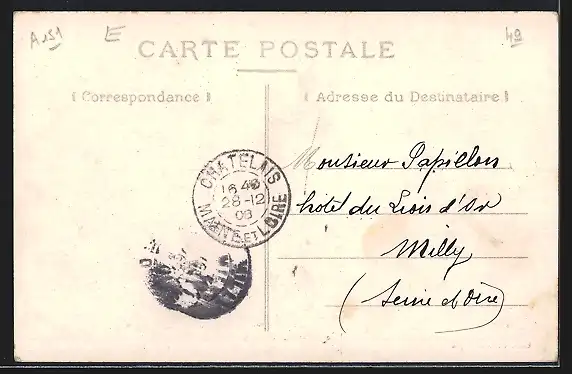 A 151
E
49
CARTE POSTALE
Correspondance
Adresse du Destinataire
Monsieur Papillon
hotel du Lion d'Or
Milly
(Seine et Oise)
CHATELAIS
16 40
28-12
08
MAINE ET LOIRE